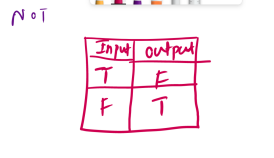 NOT
Input output
T F
F T